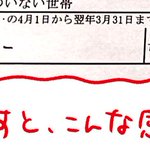 いない世帯
の4月1日から翌年3月31日まで
ー
すと、こんな感